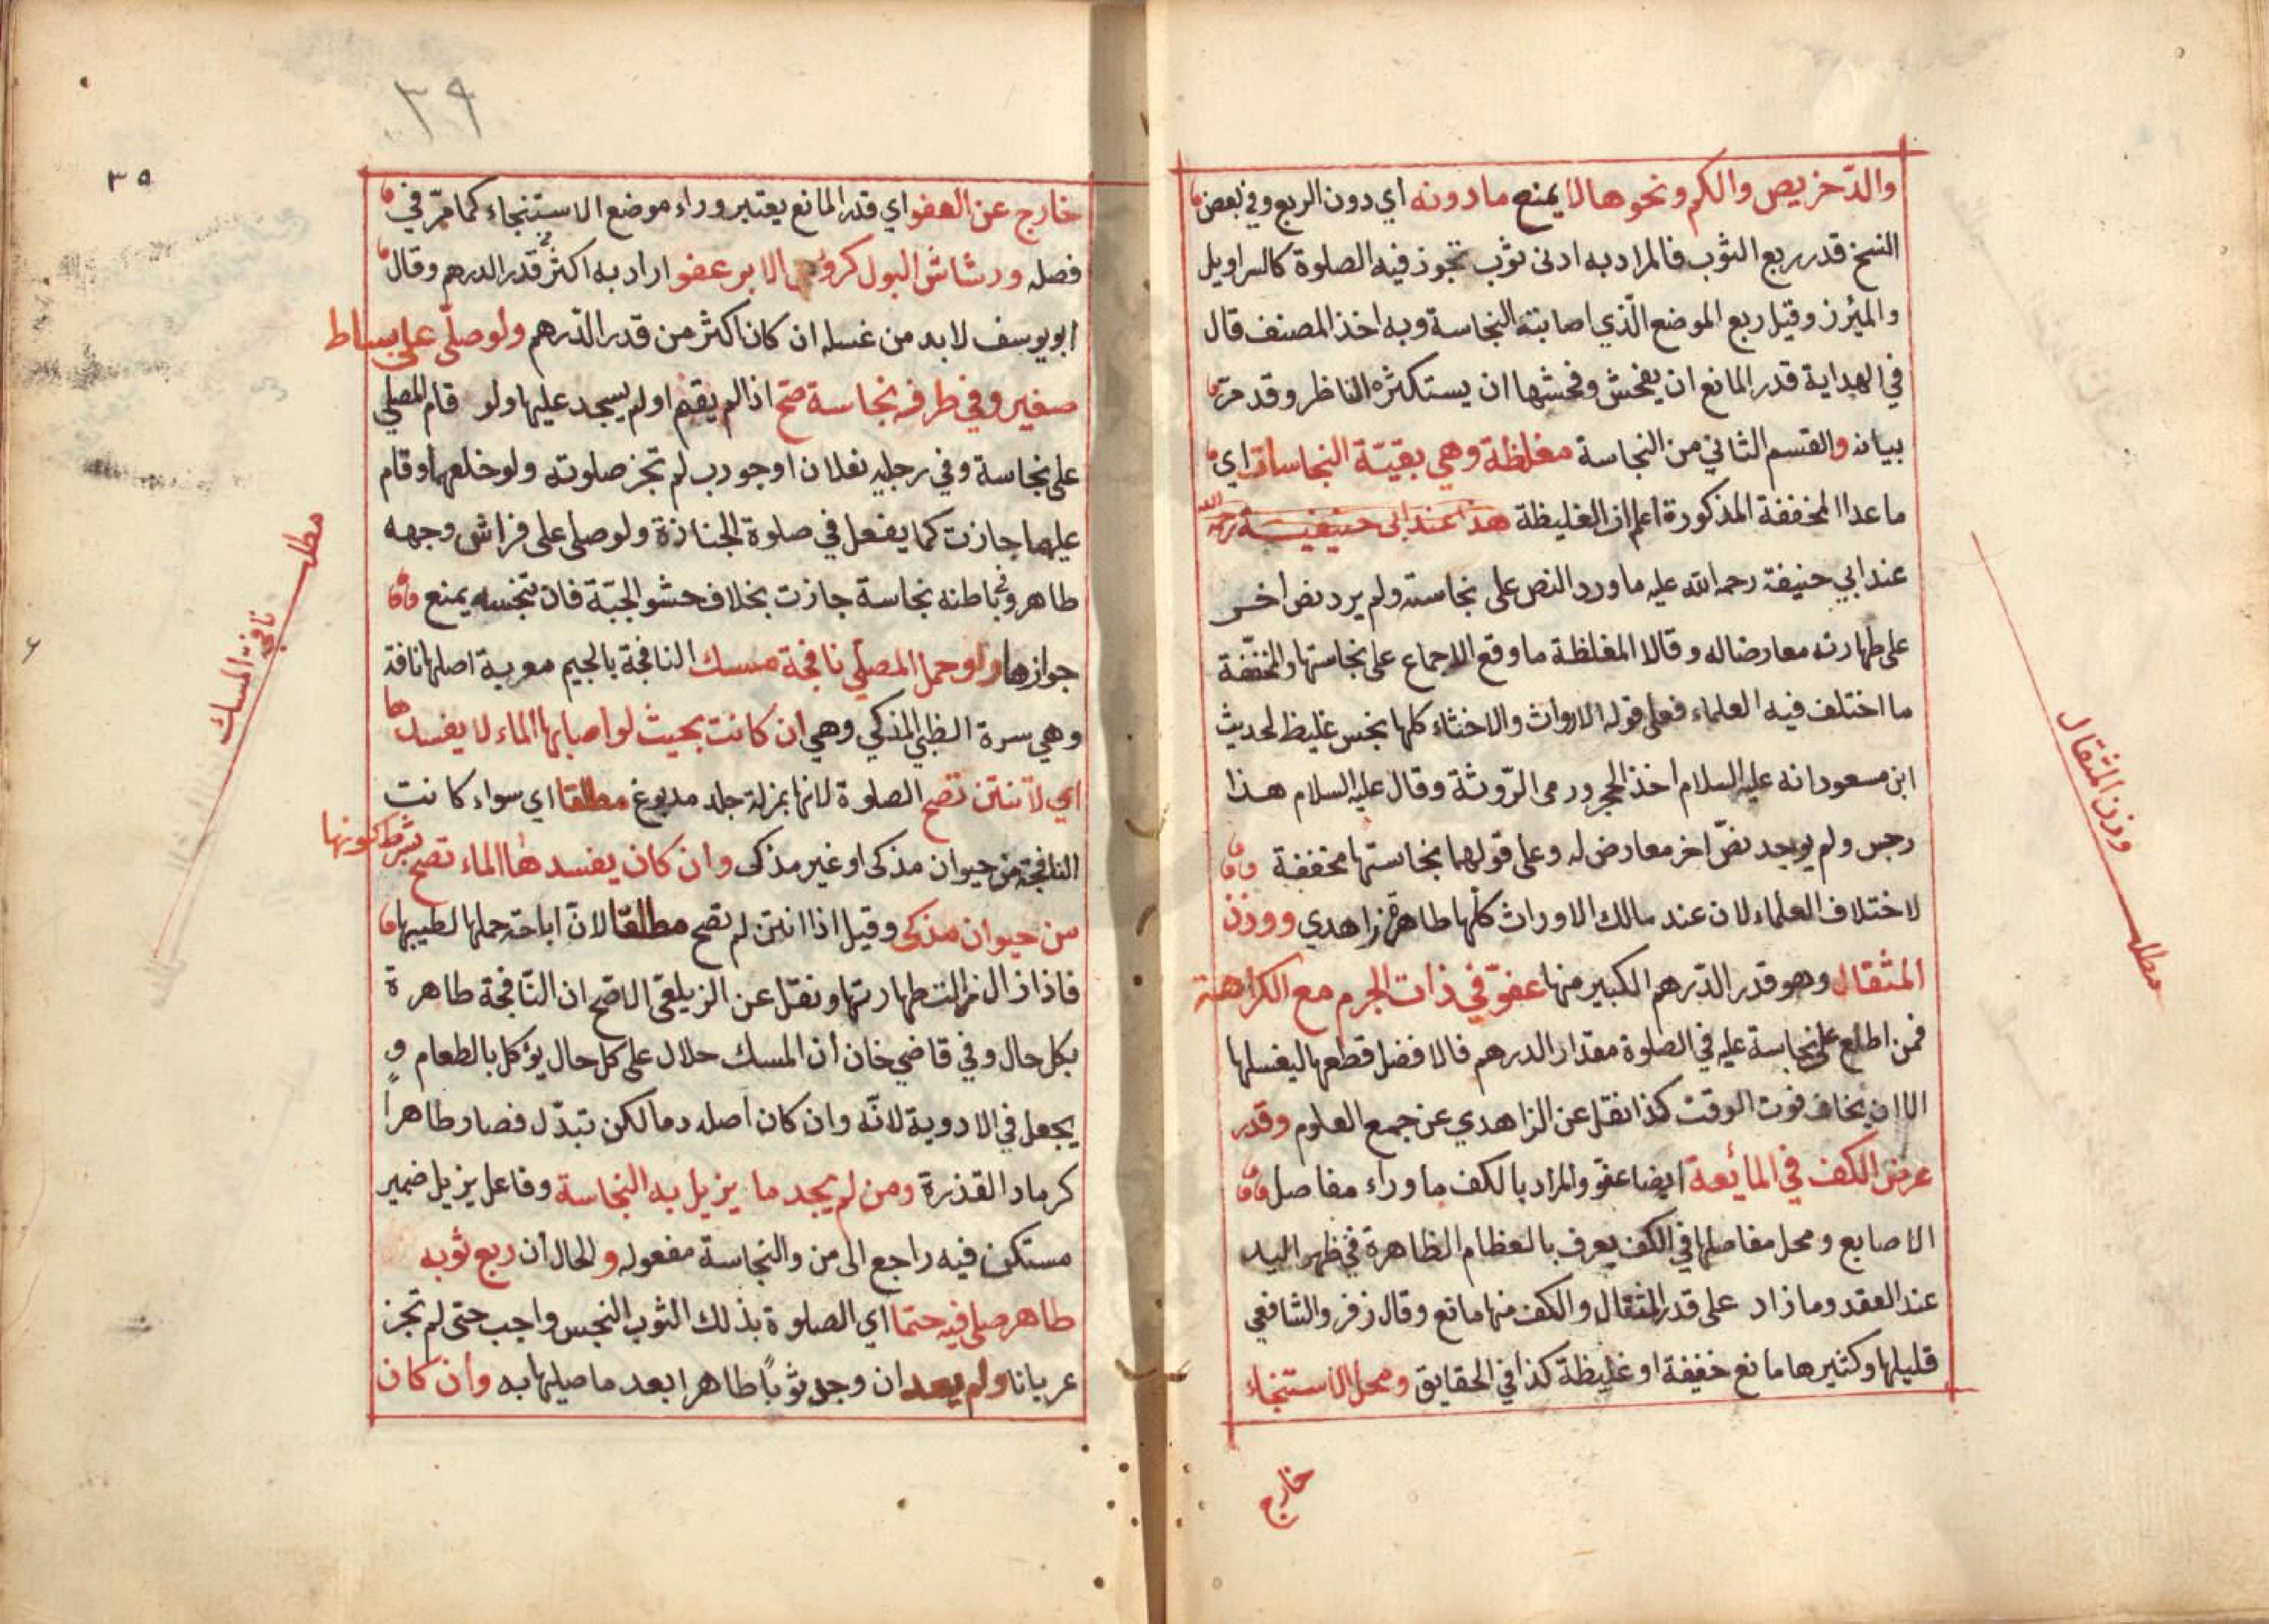 والدّخريص والكم ونحوها لا يمنع ما دونه اي دون الربع وفي بعض
النسخ قدر ربع الثوب فالمراد به ادنى ثوب تجوز فيه الصلوة كالسراويل
والمئزر وقيل ربع الموضع الّذي اصابته النجاسة وبه اخذ المصنف قال
في الهداية قدر المانع ان يفحش وفحشها ان يستكثره الناظر وقد مرّ
بيانه والقسم الثاني من النجاسة مغلظة وهي بقيّة النجاسات اي
ما عدا المخففة المذكورة اعلم ان الغليظة هذا عند ابى حنيفة رحمه الله
عند ابي حنيفة رحمه الله عليه ما ورد النص على نجاسته ولم يرد نص اخر
على طهارته معارضا له وقالا المغلظة ما وقع الاجماع على نجاستها والمخففة
ما اختلف فيه العلماء فعلى قوله الارواث والاخثاء كلها نجس غليظ لحديث
ابن مسعود انه عليه السلام اخذ الحجر ورمى الرّوثة وقال عليه السلام هذا
رجس ولم يوجد نصّ اخر معارض له وعلى قولهما نجاستها مخففة
لاختلاف العلماء لان عند مالك الاوراث كلّها طاهرة زاهدي ووزن
المثقال وهو قدر الدّرهم الكبير منها عفوّ في ذات الجرم مع الكراهة
فمن اطلع على نجاسة عليه في الصلوة مقدار الدرهم فالافضل قطعها ليغسلها
الا ان يخاف فوت الوقت كذا نقل عن الزاهدي عن جمع العلوم وقدر
عرض الكف في المائعة ايضا عفو والمراد بالكف ما وراء مفاصل
الاصابع ومحل مفاصلها في الكف يعرف بالعظام الظاهرة في ظهر اليد
عند العقد وما زاد على قدر المثقال والكف منها مانع وقال زفر والشافعي
قليلها وكثيرها مانع خفيفة او غليظة كذا في الحقايق ومحل الاستنجاء
خارج
وزن المثقال
مطلب
٣٩
٣٥
خارج عن العفو اي قدر المانع يعتبر وراء موضع الاستنجاء كما مرّ في
فصله ورشاش البول كرؤس الابر عفو اراد به اكثر قدر الدرهم وقال
ابو يوسف لا بد من غسله ان كان اكثر من قدر الدّرهم ولو صلّى على بساط
صغير وفي طرفه نجاسة صح اذا لم يقم او لم يسجد عليها ولو قام المصلي
على نجاسة وفي رجليه نعلان او جورب لم تجز صلوته ولو خلعهما وقام
عليهما جازت كما يفعل في صلوة الجنازة ولو صلى على فراش وجهه
طاهر وفي باطنه نجاسة جازت بخلاف حشو الجبّة فان تنجسه يمنع
جوازها ولو حمل المصلي نافجة مسك النافجة بالجيم معربة اصلها نافة
وهي سرة الظبي المذكي وهي ان كانت بحيث لو اصابها الماء لا يفسدها
اي لا تنتن تصح الصلوة لانها بمنزلة جلد مدبوغ مطلقا اي سواء كانت
النافجة من حيوان مذكى او غير مذكى وان كان يفسدها الماء تصح بشرط كونها
من حيوان مذكى وقيل اذا انتن لم تصح مطلقا لانّ اباحة حملها لطيبها
فاذا زال زالت طهارتها ونقل عن الزيلعي الاصح ان النّافجة طاهرة
بكل حال وفي قاضي خان ان المسك حلال على كل حال يؤكل بالطعام و
يجعل في الادوية لانّه وان كان اصله دما لكن تبدّل فصار طاهراً
كرماد القذرة ومن لم يجد ما يزيل به النجاسة وفاعل يزيل ضمير
مستكن فيه راجع الى من والنجاسة مفعوله والحال ان ربع ثوبه
طاهر صلى فيه حتما اي الصلوة بذلك الثوب النجس واجب حتى لم تجز
عريانا ولم يعد ان وجد ثوباً طاهرا بعد ما صليها به وان كان
مطلب
نافجة المسك